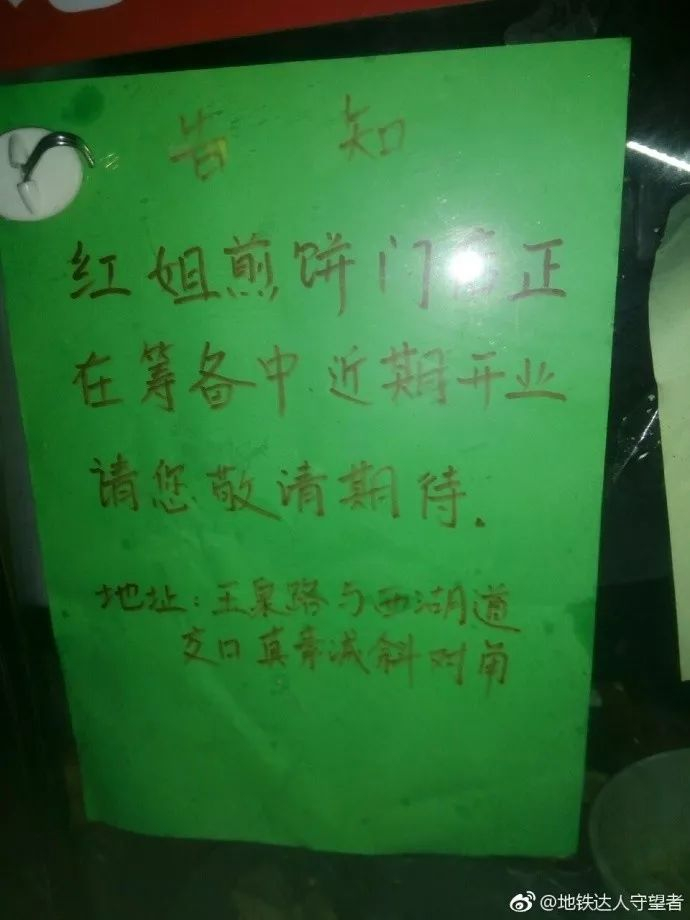 告 知
红姐煎饼门店正
在筹备中近期开业
请您敬请期待.
地址:王泉路与西湖道
交口真减斜对角
@地铁达人守望者